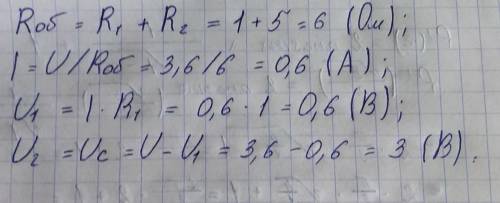 Rоб = R₁ + R₂ = 1 + 5 = 6 (Ом);
I = U/Rоб = 3,6/6 = 0,6 (А);
U₁ = I · R₁ = 0,6 · 1 = 0,6 (В);
U₂ = Uc = U - U₁ = 3,6 - 0,6 = 3 (В).